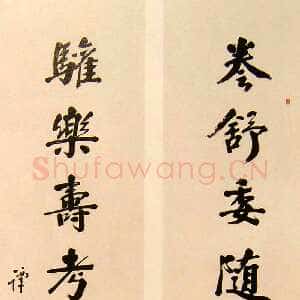 卷舒委随
驩樂壽考
譚
Shufawang.CN